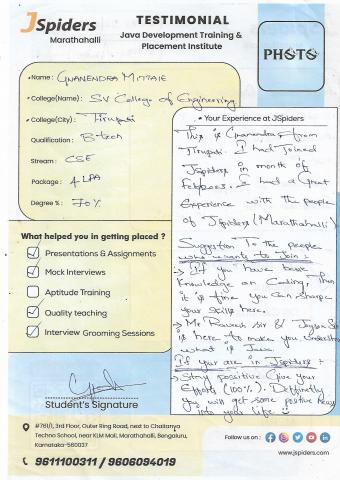 JSpiders
Marathahalli
TESTIMONIAL
Java Development Training &
Placement Institute
PHOTO
Name: Gnanendra Mittaie
College(Name): SV College of Engineering
College(City): Tirupati
Qualification: B-tech
Stream: CSE
Package: 4 LPA
Degree %: 70%
Your Experience at JSpiders
This is Gnanendra from
Tirupati. I had Joined
JSpiders in month of
I had a Great
Experience with the people
of JSpiders (Marathahalli)
Suggestion To the people
who wants to Join:
→ If you have basic
Knowledge on Coding, Then
it is fine you can sharpe
your skills here.
→ Mr Ravish sir &
is here to make you understand
what is Java.
If you are in JSpiders:
→ Stay Positive Give your
Efforts (100%). Deffinetly
you will get some positive
into your life
What helped you in getting placed ?
Presentations & Assignments
Mock Interviews
Aptitude Training
Quality teaching
Interview Grooming Sessions
Student's Signature
#761/1, 3rd Floor, Outer Ring Road, next to Chaitanya
Techno School, near KLM Mall, Marathahalli, Bengaluru,
Karnataka-560037
9611100311 / 9606094019
Follow us on:
www.jspiders.com